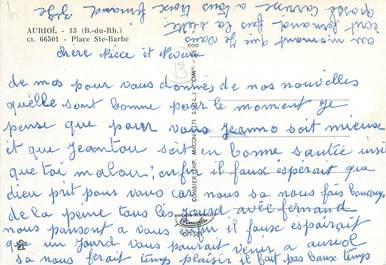 AURIOL - 13 (B.-du-Rh.)
CI. 66501 - Place Ste-Barbe
chere Nièce et Neveu
de mos pour vous donnes de nos nouvelles
quelle sont bonne pour le moment je
pense que pour vous Jeanno soit mieux
et que Jeantou soit en bonne santée ainsi
que toi malou; enfin il faux espérait que
dieu prit pour vous car nous sa nous fais beaucoup
de la peine tous les jours avec fernand
nous pansont a vous enfin il faux espairait
que un jourd vous pourait venir a auriol
sa nous ferait temps plaisir il fait pas beaux temps
au moment que je vous
écrit fernand fais la sieste
grosse caresse a tous trois fernand